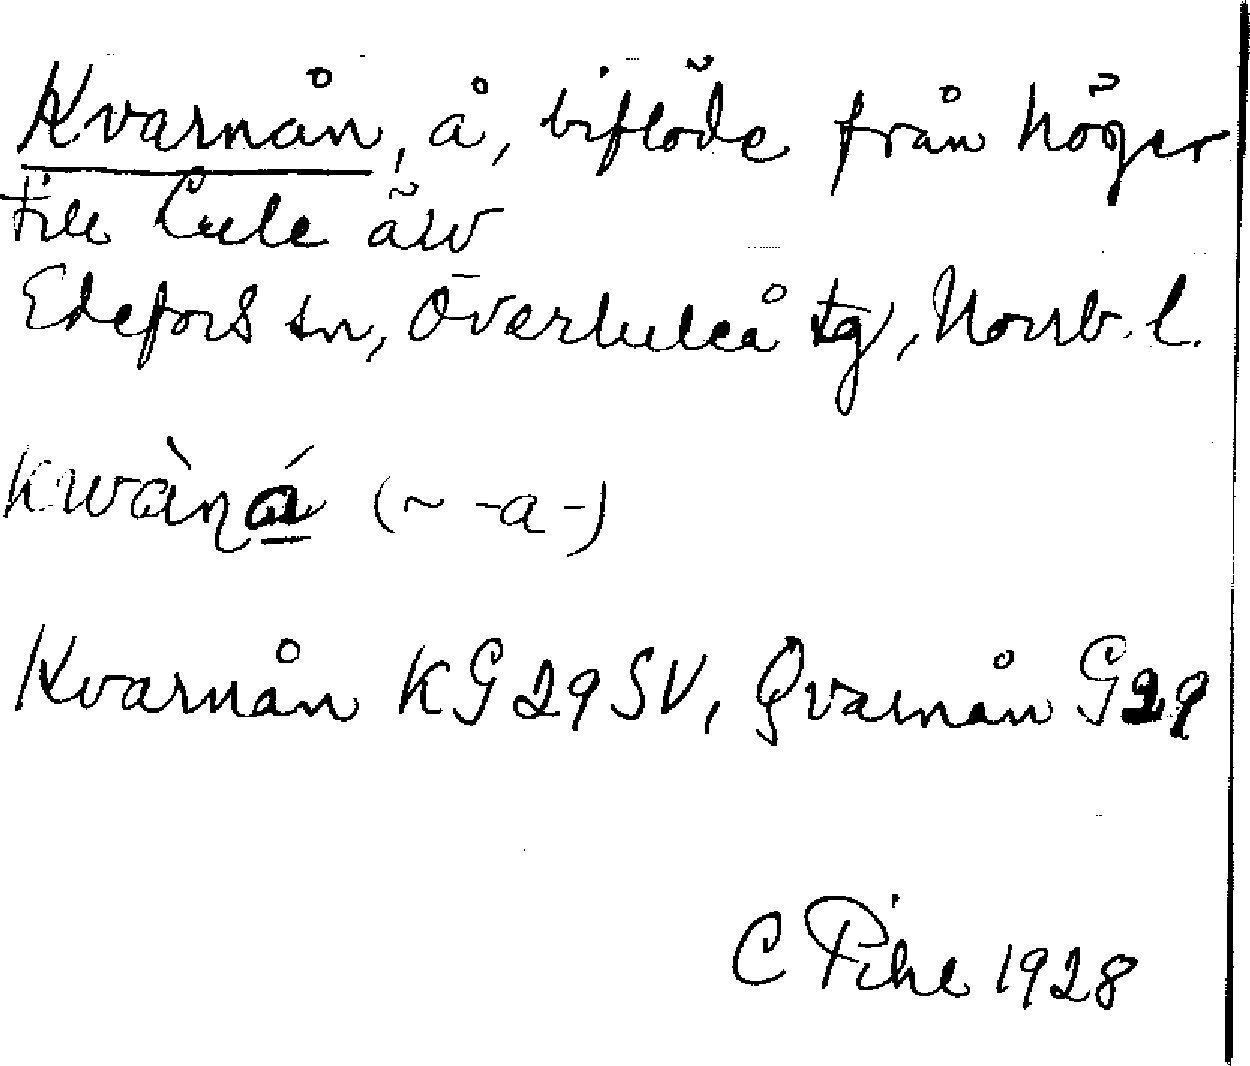 Kvarnån, å, biflöde från höger
till Lule älv
Edefors sn, Överluleå tg, Norrb. l.
kwàn̦á (~ -a-)
Kvarnån KG29SV, Qvarnån G29
C Pihl 1928